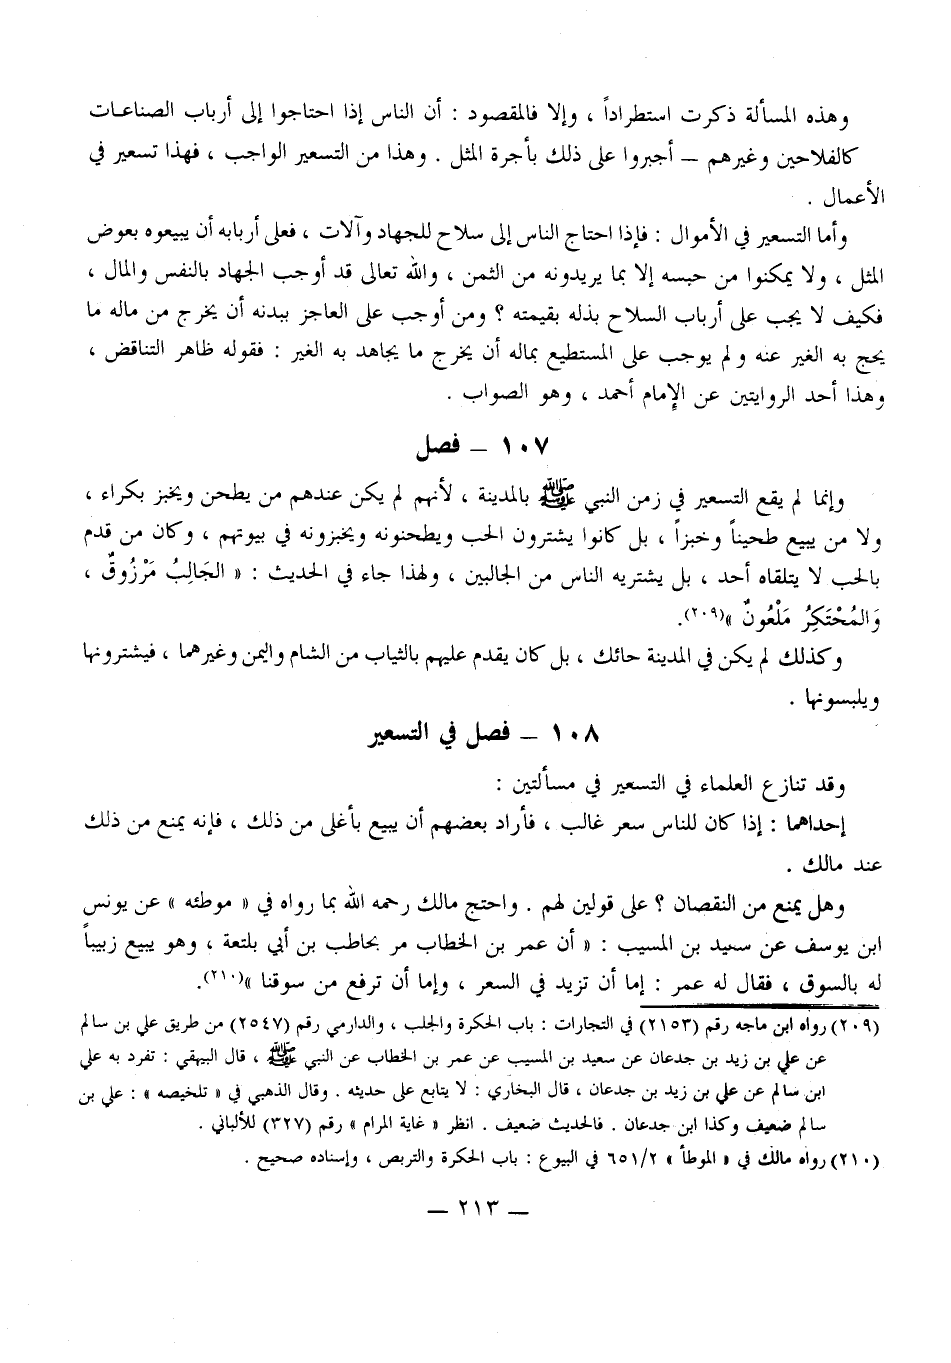 وهذه المسألة ذكرت استطراداً ، وإلا فالمقصود : أن الناس إذا احتاجوا إلى أرباب الصناعات
كالفلاحين وغيرهم – أجبروا على ذلك بأجرة المثل . وهذا من التسعير الواجب ، فهذا تسعير في
الأعمال .
وأما التسعير في الأموال : فإذا احتاج الناس إلى سلاح للجهاد وآلات ، فعلى أربابه أن يبيعوه بعوض
المثل ، ولا يمكنوا من حبسه إلا بما يريدونه من الثمن ، والله تعالى قد أوجب الجهاد بالنفس والمال ،
فكيف لا يجب على أرباب السلاح بذله بقيمته ؟ ومن أوجب على العاجز ببدنه أن يخرج من ماله ما
يحج به الغير عنه ولم يوجب على المستطيع بماله أن يخرج ما يجاهد به الغير : فقوله ظاهر التناقض ،
وهذا أحد الروايتين عن الإمام أحمد ، وهو الصواب .
١٠٧ – فصل
وإنما لم يقع التسعير في زمن النبي ﷺ بالمدينة ، لأنهم لم يكن عندهم من يطحن ويخبز بكراء ،
ولا من يبيع طحيناً وخبزاً ، بل كانوا يشترون الحب ويطحنونه ويخبزونه في بيوتهم ، وكان من قدم
بالحب لا يتلقاه أحد ، بل يشتريه الناس من الجالبين ، ولهذا جاء في الحديث : « الجَالِبُ مَرْزُوقٌ ،
وَالمُحْتَكِرُ مَلْعُونٌ »(٢٠٩).
وكذلك لم يكن في المدينة حائك ، بل كان يقدم عليهم بالثياب من الشام واليمن وغيرهما ، فيشترونها
ويلبسونها .
١٠٨ – فصل في التسعير
وقد تنازع العلماء في التسعير في مسألتين :
إحداهما : إذا كان للناس سعر غالب ، فأراد بعضهم أن يبيع بأغلى من ذلك ، فإنه يمنع من ذلك
عند مالك .
وهل يمنع من النقصان ؟ على قولين لهم . واحتج مالك رحمه الله بما رواه في « موطئه » عن يونس
ابن يوسف عن سعيد بن المسيب : « أن عمر بن الخطاب مر بحاطب بن أبي بلتعة ، وهو يبيع زبيباً
له بالسوق ، فقال له عمر : إما أن تزيد في السعر ، وإما أن ترفع من سوقنا »(٢١٠).
(٢٠٩) رواه ابن ماجه رقم (٢١٥٣) في التجارات : باب الحكرة والجلب ، والدارمي رقم (٢٥٤٧) من طريق علي بن سالم
عن علي بن زيد بن جدعان عن سعيد بن المسيب عن عمر بن الخطاب عن النبي ﷺ ، قال البيهقي : تفرد به علي
ابن سالم عن علي بن زيد بن جدعان ، قال البخاري : لا يتابع على حديثه . وقال الذهبي في « تلخيصه » : علي بن
سالم ضعيف وكذا ابن جدعان . فالحديث ضعيف . انظر « غاية المرام » رقم (٣٢٧) للألباني .
(٢١٠) رواه مالك في « الموطأ » ٦٥١/٢ في البيوع : باب الحكرة والتربص ، وإسناده صحيح .
– ٢١٣ –